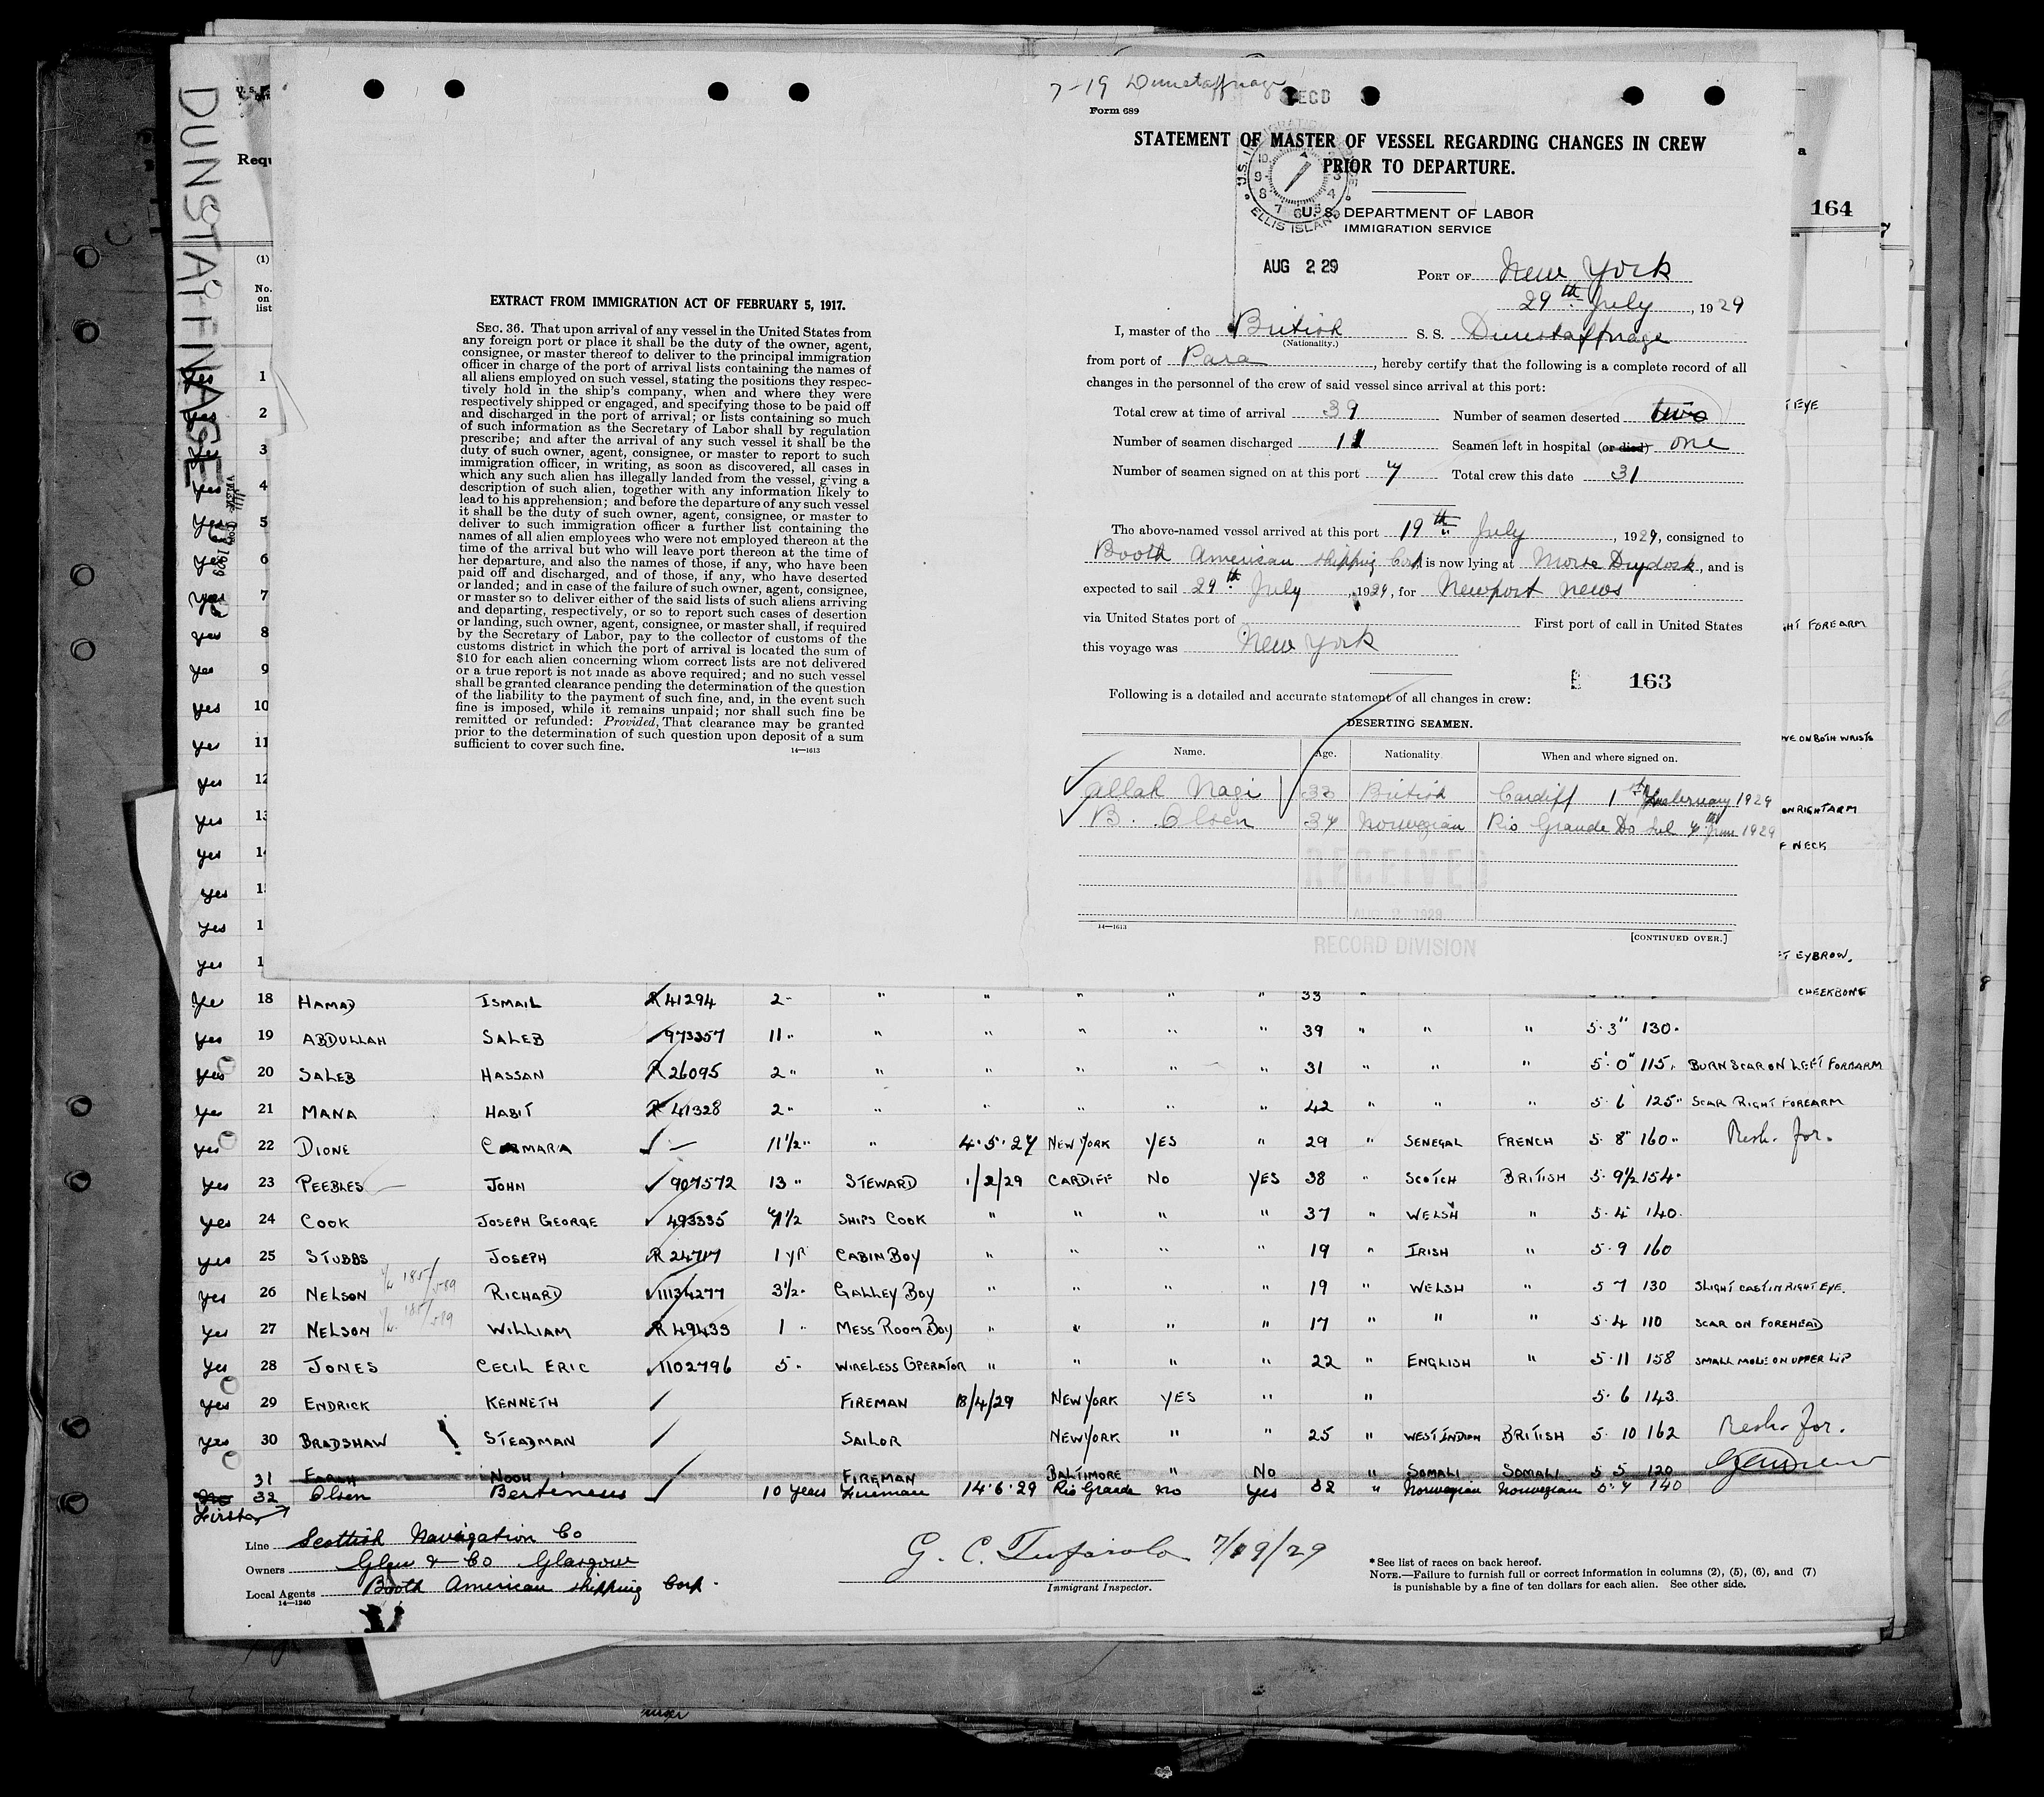 7-19 Dunstaffnage
RECD
Form 689
STATEMENT OF MASTER OF VESSEL REGARDING CHANGES IN CREW
PRIOR TO DEPARTURE.
U. S. DEPARTMENT OF LABOR
IMMIGRATION SERVICE
ELLIS ISLAND
AUG 2 29
PORT OF New York
29th July, 1929
I, master of the British S. S. Dunstaffnage
(Nationality.)
from port of Para, hereby certify that the following is a complete record of all
changes in the personnel of the crew of said vessel since arrival at this port:
Total crew at time of arrival 39 Number of seamen deserted two
Number of seamen discharged 11 Seamen left in hospital (or died) one
Number of seamen signed on at this port 4 Total crew this date 31
The above-named vessel arrived at this port 19th July, 1929, consigned to
Booth American Shipping Corp is now lying at Morse Drydock, and is
expected to sail 29th July, 1929, for Newport News
via United States port of First port of call in United States
this voyage was New York
163
Following is a detailed and accurate statement of all changes in crew:
DESERTING SEAMEN.
Name. Age. Nationality When and where signed on.
Allah Nagi 33 British Cardiff 1st February 1929
B. Olsen 34 Norwegian Rio Grande Do Sul 4th June 1929
RECEIVED
AUG 2 1929
RECORD DIVISION
14—1613
[CONTINUED OVER.]
EXTRACT FROM IMMIGRATION ACT OF FEBRUARY 5, 1917.
SEC. 36. That upon arrival of any vessel in the United States from
any foreign port or place it shall be the duty of the owner, agent,
consignee, or master thereof to deliver to the principal immigration
officer in charge of the port of arrival lists containing the names of
all aliens employed on such vessel, stating the positions they respec-
tively hold in the ship's company, when and where they were
respectively shipped or engaged, and specifying those to be paid off
and discharged in the port of arrival; or lists containing so much
of such information as the Secretary of Labor shall by regulation
prescribe; and after the arrival of any such vessel it shall be the
duty of such owner, agent, consignee, or master to report to such
immigration officer, in writing, as soon as discovered, all cases in
which any such alien has illegally landed from the vessel, giving a
description of such alien, together with any information likely to
lead to his apprehension; and before the departure of any such vessel
it shall be the duty of such owner, agent, consignee, or master to
deliver to such immigration officer a further list containing the
names of all alien employees who were not employed thereon at the
time of the arrival but who will leave port thereon at the time of
her departure, and also the names of those, if any, who have been
paid off and discharged, and of those, if any, who have deserted
or landed; and in case of the failure of such owner, agent, consignee,
or master so to deliver either of the said lists of such aliens arriving
and departing, respectively, or so to report such cases of desertion
or landing, such owner, agent, consignee, or master shall, if required
by the Secretary of Labor, pay to the collector of customs of the
customs district in which the port of arrival is located the sum of
$10 for each alien concerning whom correct lists are not delivered
or a true report is not made as above required; and no such vessel
shall be granted clearance pending the determination of the question
of the liability to the payment of such fine, and, in the event such
fine is imposed, while it remains unpaid; nor shall such fine be
remitted or refunded: Provided, That clearance may be granted
prior to the determination of such question upon deposit of a sum
sufficient to cover such fine.
14—1613
DUNSTAFFNAGE
Requ
(1)
No. on list
164
Yes 1
Yes 2
Yes 3
Yes 4
Yes 5
Yes 6
Yes 7
Yes 8
Yes 9
Yes 10
Yes 11
Yes 12
Yes 13
Yes 14
Yes 15
Yes 1
Yes 1
T EYE
HT FOREARM
VE ON BOTH WRISTS
ON RIGHT ARM
F NECK
T EYBROW.
CHEEKBONE
Yes 18 HAMAD ISMAIL R 41294 2 " " " " " " 33 "
Yes 19 ABDULLAH SALEB 973357 11 " " " " " " 39 " " " 5.3" 130
Yes 20 SALEB HASSAN R 26095 2 " " " " " " 31 " " " 5'.0" 115 BURN SCAR ON LEFT FORARM
Yes 21 MANA HABIT R 41328 2 " " " " " " 42 " " " 5.6 125 SCAR RIGHT FOREARM
Yes 22 DIONE CAMARA — 11 1/2 " " 4.5.27 NEW YORK YES " 29 " SENEGAL FRENCH 5.8" 160 Resh. for.
Yes 23 PEEBLES JOHN 907572 13 " STEWARD 1/2/29 CARDIFF NO YES 38 " SCOTCH BRITISH 5.9 1/2 154
Yes 24 COOK JOSEPH GEORGE 493335 1/2 SHIPS COOK " " " " 37 " WELSH " 5.4 140
Yes 25 STUBBS JOSEPH R 24717 1 yr CABIN BOY " " " " 19 " IRISH " 5.9 160
Yes 26 NELSON RICHARD 1134277 3 1/2 GALLEY BOY " " " " 19 " WELSH " 5 7 130 SLIGHT CAST IN RIGHT EYE.
Yes 27 NELSON WILLIAM R 49433 1 " MESS ROOM BOY " " " " 17 " " " 5.4 110 SCAR ON FOREHEAD
Yes 28 JONES CECIL ERIC 1102796 5 " WIRELESS OPERATOR " " " " 22 " ENGLISH " 5.11 158 SMALL MOLE ON UPPER LIP
Yes 29 ENDRICK KENNETH FIREMAN 18/4/29 NEW YORK YES " " 5.6 143
Yes 30 BRADSHAW STEADMAN SAILOR NEW YORK " " 25 " WEST INDIAN BRITISH 5.10 162 Resh. for.
31 FARAH NOOH FIREMAN BALTIMORE " NO " SOMALI SOMALI 5 5 120
32 Olsen Berteneus 10 years Fireman 14.6.29 Rio Grande No Yes 32 " Norwegian Norwegian 5.7 140
First
Line Scottish Navigation Co
Owners Glen & Co Glasgow
Local Agents Booth American Shipping Corp.
14—1240
G. C. Tufarolo 7/19/29
Immigrant Inspector.
* See list of races on back hereof.
NOTE.—Failure to furnish full or correct information in columns (2), (5), (6), and (7)
is punishable by a fine of ten dollars for each alien. See other side.